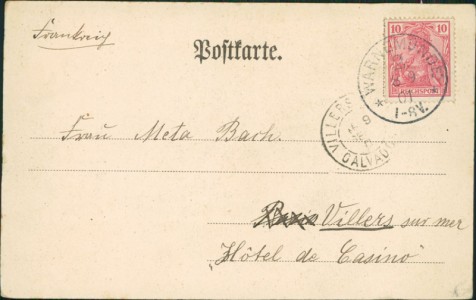 Frankreich
Postkarte.
10 10
REICHSPOST
WARNEMÜNDE
01
1-8V.
VILLERS
9
CALVADOS
Frau Meta Bach.
Paris Villers sur mer
„Hôtel de Casino"